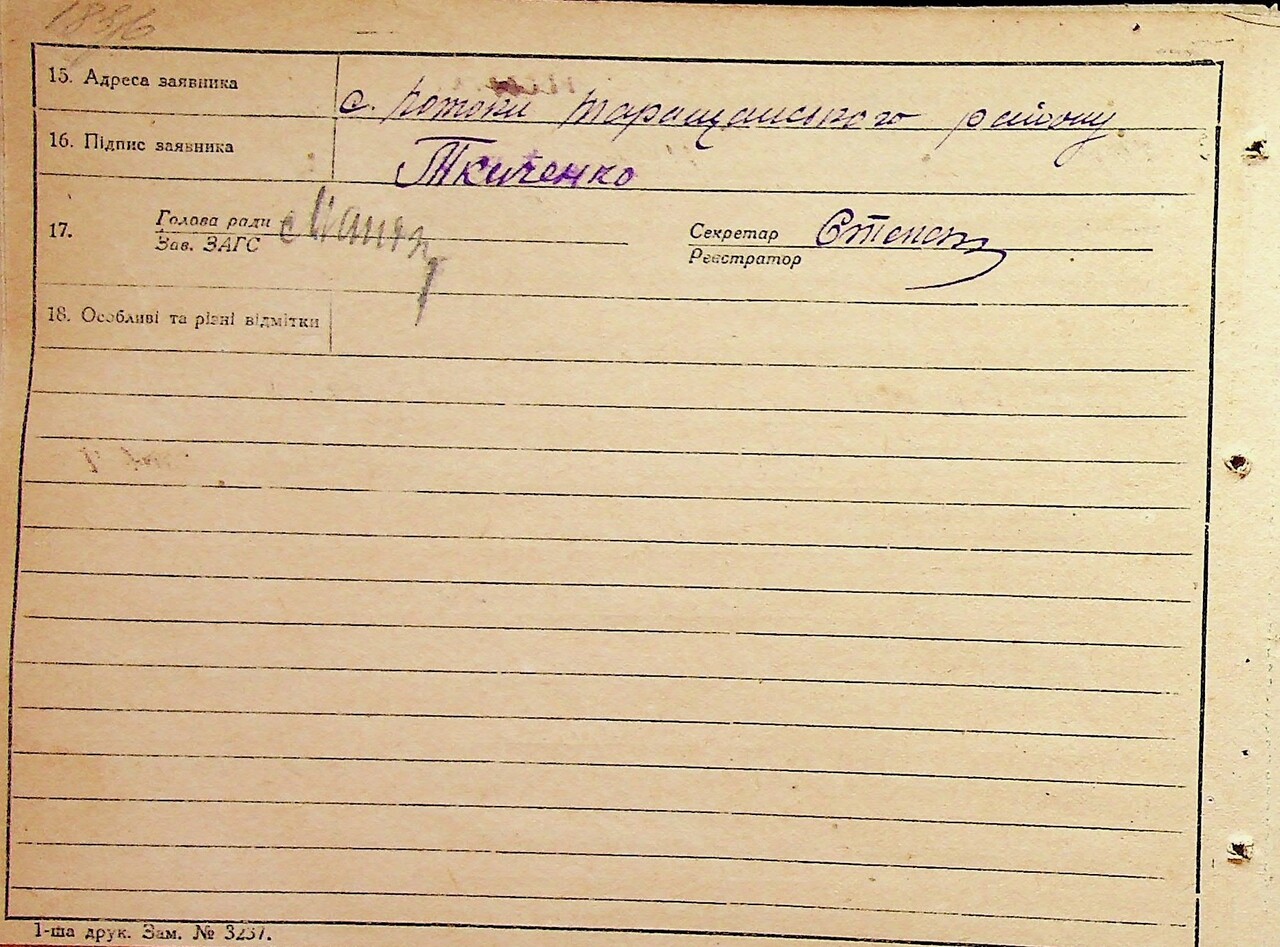 15. Адреса заявника
с. Потоки Таращанського району
16. Підпис заявника
Ткаченко
17.
Голова ради
Зав. ЗАГС
Секретар
Реєстратор
18. Особливі та різні відмітки
1-ша друк. Зам. № 3237.